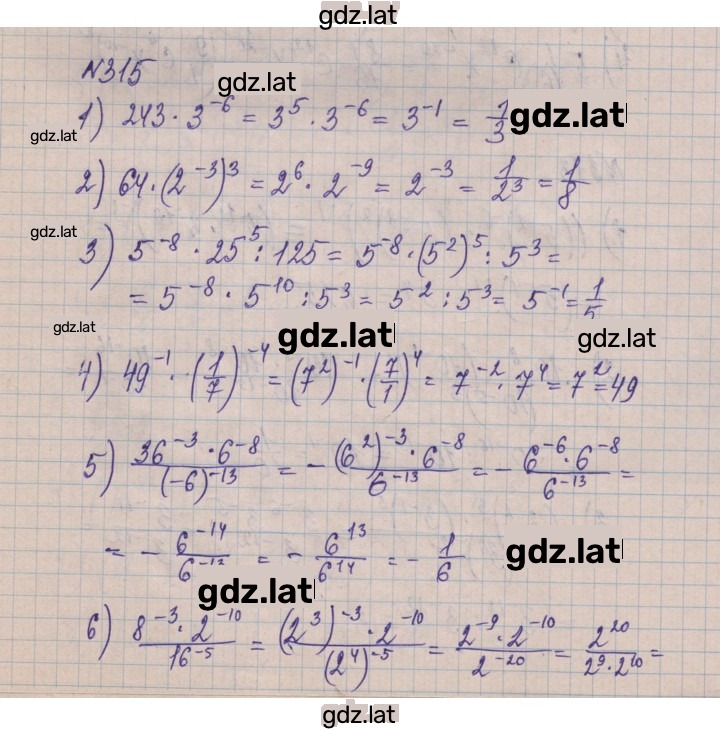 gdz.lat
№315
gdz.lat
1) 243 · 3^-6 = 3^5 · 3^-6 = 3^-1 = 1/3
gdz.lat
gdz.lat
2) 64 · (2^-3)^3 = 2^6 · 2^-9 = 2^-3 = 1/2^3 = 1/8
gdz.lat
3) 5^-8 · 25^5 : 125 = 5^-8 · (5^2)^5 : 5^3 =
= 5^-8 · 5^10 : 5^3 = 5^2 : 5^3 = 5^-1 = 1/5
gdz.lat
gdz.lat
gdz.lat
4) 49^-1 · (1/7)^-4 = (7^2)^-1 · (7/1)^4 = 7^-2 · 7^4 = 7^2 = 49
5) (36^-3 · 6^-8)/((-6)^-13) = - ((6^2)^-3 · 6^-8)/(6^-13) = - (6^-6 · 6^-8)/(6^-13) =
= - 6^-14/6^-13 = - 6^13/6^14 = - 1/6
gdz.lat
gdz.lat
6) (8^-3 · 2^-10)/(16^-5) = ((2^3)^-3 · 2^-10)/((2^4)^-5) = (2^-9 · 2^-10)/(2^-20) = 2^20/(2^9 · 2^10) =
gdz.lat